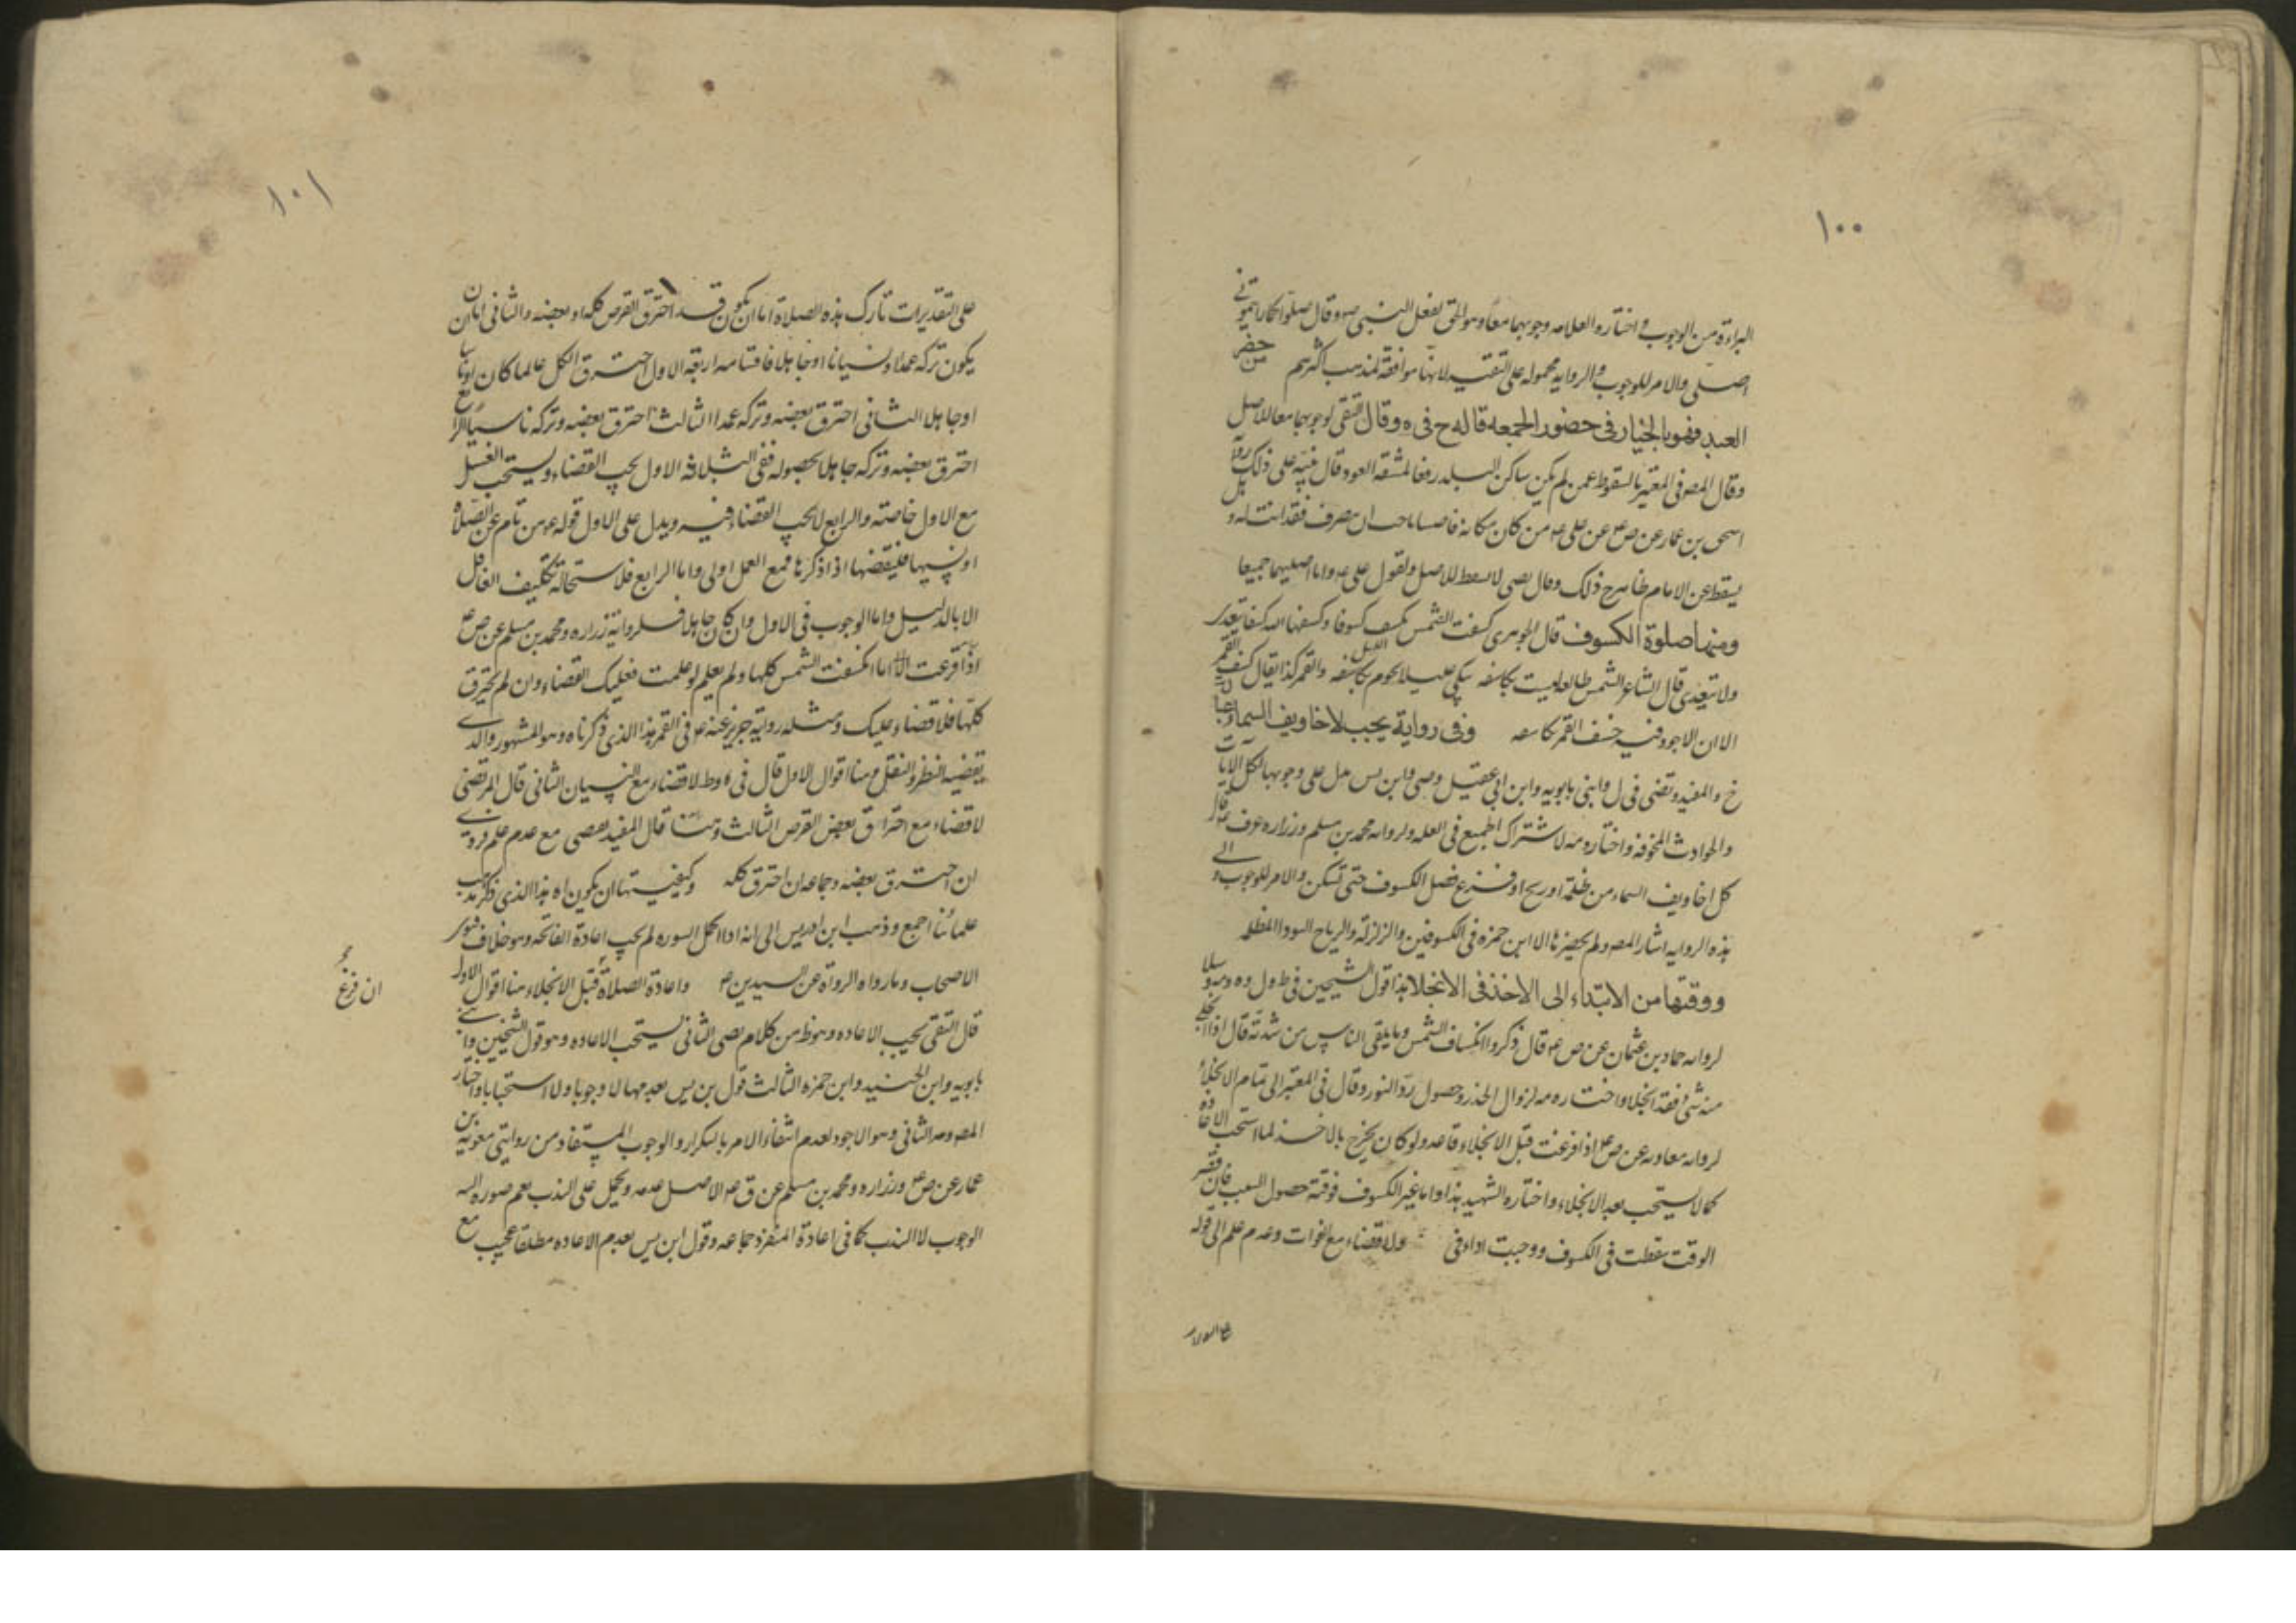 ١٠٠
البراءة من الوجوب واختاره العلامه وجوبهما معا وهو الحق لفعل النبي ص وقال صلوا كما رايتموني
اصلي والامر للوجوب والروايه محمولة على التقيه لانها موافقة لمذهب اكثرهم من حضر
العيد فهو بالخيار في حضور الجمعه قاله ح في ه وقال التقي لوجوبهما معا للاصل
وقال المص في المعتبر بالسقوط عمن لم يكن ساكن البلد رفعا لمشقة العود وقال فيه على ذلك رواية
اسحق بن عمار عن ص ع عن علي ع من كان مكانه قاصيا فاحب ان ينصرف فقد اذنت له و
يسقط عن الامام ظاهر ح ذلك وقال لا يسقط للاصل ولقول علي ع وانا اصليهما جميعا
ومنها صلوة الكسوف قال الجوهري كسفت الشمس تكسف كسوفا وكسفها الله كسفا يتعدى
ولا يتعدى قال الشاعر الشمس طالعة ليست بكاسفة تبكي عليك نجوم الليل والقمر وكذا يقال كسف القمر
الا ان الاجود فيه خسف القمر وفي رواية يجب لاخاويف السماء
خ والمفيد وتضى في ل وابني بابويه وابن ابي عقيل وابن يس على وجوبها لكل الايات
والحوادث المخوفة واختاره مه لاشتراك الجميع في العله ولرواية محمد بن مسلم وزراره
كل اخاويف السماء من ظلمة او ريح او فزع فصل الكسوف حتى تسكن والامر للوجوب والى
هذه الروايه اشار المص ولم يحصرها الا ابن حمزه في الكسوفين والزلزلة والرياح السود المظلمه
ووقتها من الابتداء الى الاخذ في الانجلا هذا قول الشيخين في ط ول
لروايه حماد بن عثمان عن ص ع قال ذكروا انكساف الشمس وما يلقى الناس من شدته قال اذا انجلى
منه شئ فقد انجلا واختاره مه لزوال الحذر وحصول رد النور وقال في المعتبر الى تمام الانجلاء
لروايه معاويه عن ص ع اذا فرغت قبل الانجلاء فاعد ولو كان يخرج بالاخذ لما استحب الاعادة
كما لا يستحب بعد الانجلاء واختاره الشهيد هذا واما غير الكسوف فوقته حصول السبب فان قصر
الوقت سقطت في الكسوف ووجبت اداء في ولا قضاء مع الفوات وعدم علم الى قوله
١٠١
على التقديرات تارك هذه الصلاة اما ان يكون قد احترق القرص كله او بعضه والثاني اما ان
يكون تركه عمدا او نسيانا او جاهلا فاقسامه اربعة الاول احترق الكل عالما كان او ناسيا
او جاهلا الثاني احترق بعضه وتركه عمدا الثالث احترق بعضه وتركه ناسيا الرابع
احترق بعضه وتركه جاهلا بحصوله ففي الثلاثة الاول يجب القضاء ويستحب الغسل
مع الاول خاصة والرابع لا يجب القضاء فيه ويدل على الاول قوله ع من نام عن الصلاة
او نسيها فليقضها اذا ذكرها فمع العمد اولى واما الرابع فلاستحالة تكليف الغافل
الا بالدليل واما الوجوب في الاول وان كان جاهلا فلرواية زراره ومحمد بن مسلم عن ص ع
اذا انكسفت الشمس كلها ولم تعلم ثم علمت فعليك القضاء وان لم يحترق
كلها فلا قضاء عليك ومثله رواية حريز عنه ع في القمر هذا الذي ذكرناه وهو المشهور والذي
يقتضيه النظر والنقل وهنا اقوال الاول قال في ه وط لا قضاء مع النسيان الثاني قال المرتضى
لا قضاء مع احتراق بعض القرص الثالث قال المفيد يقضى مع عدم علم فرادى
ان احترق بعضه وجماعه ان احترق كله وكيفيتها ان يكون اه هذا الذي ذكره مذهب
علمائنا اجمع وذهب ابن ادريس الى انه اذا اكمل السوره لم يجب اعادة الفاتحه وهو خلاف مشهور
الاصحاب وما رواه الرواة عن السيدين ع واعادة الصلاة قبل الانجلاء هنا اقوال الاول
ان فرغ
قال التقي يجب الاعاده وهو ظ من كلام الثاني يستحب الاعاده وهو قول الشيخين وابني
بابويه وابن الجنيد وابن حمزه الثالث قول بن يس بعدمها لا وجوبا ولا استحبابا واختار
المص ومه الثاني وهو الاجود لعدم اقتضاء الامر بالتكرار والوجوب المستفاد من روايتي معوية بن
عمار عن ص ع وزراره ومحمد بن مسلم عن ق ع الاصل عدمه ويحمل على الندب نعم صوره
الوجوب لا الندب كما في اعادة المنفرد جماعه وقول ابن يس بعدم الاعاده مطلقا عجيب مع